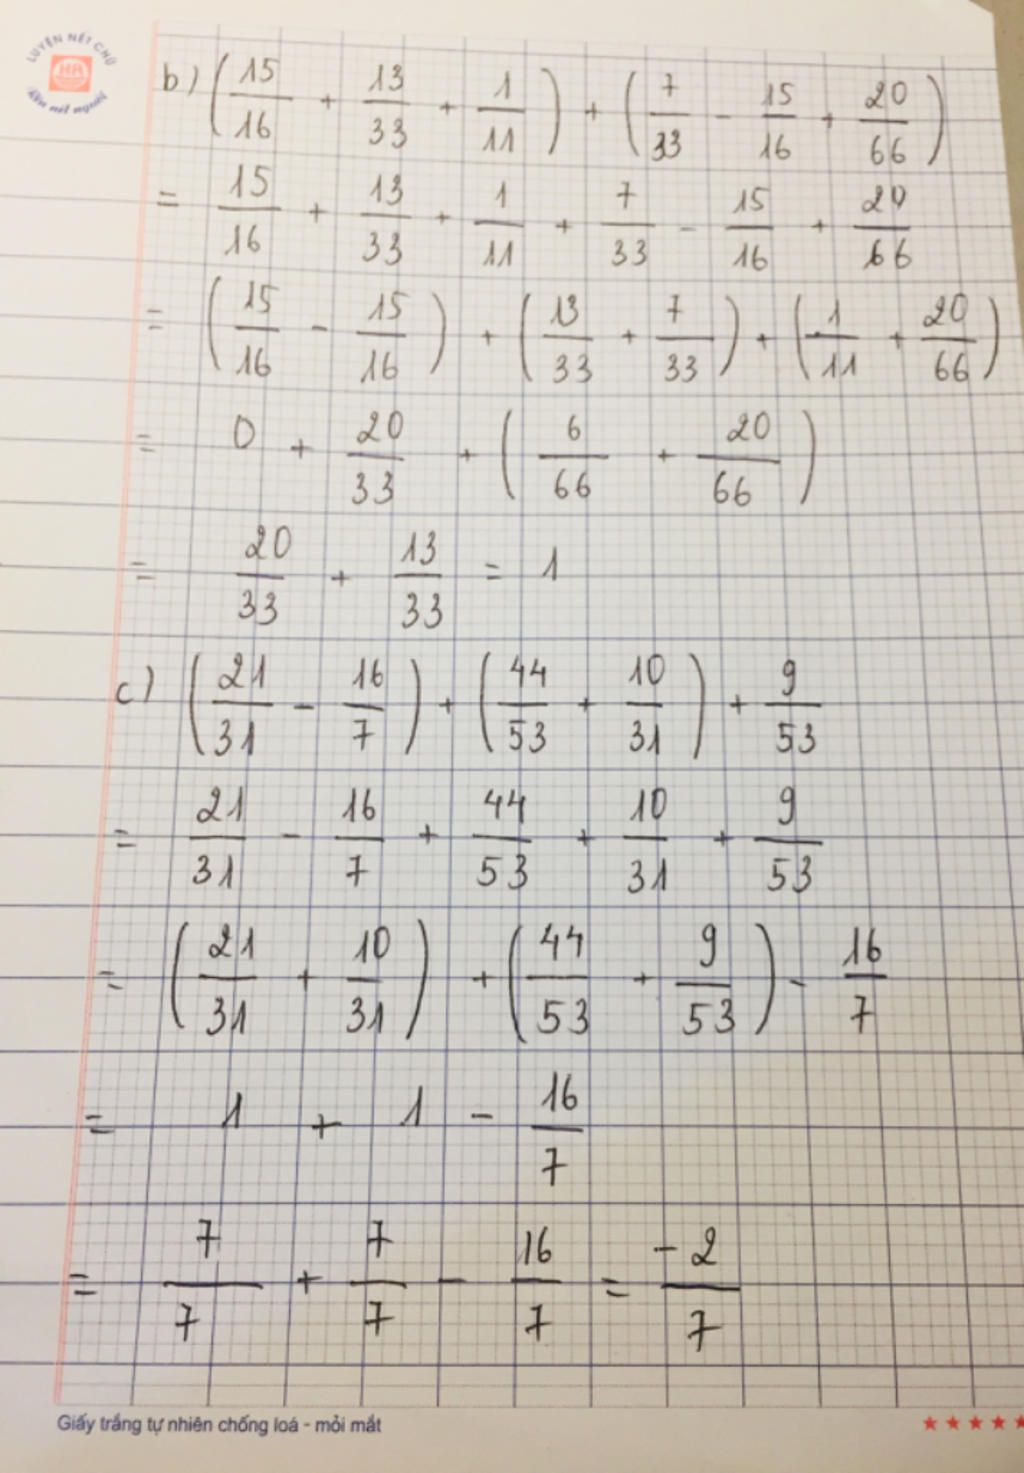 LUYỆN NÉT CHỮ
HA
Rèn nết người
b) (15/16 + 13/33 + 1/11) + (7/33 - 15/16 + 20/66)
= 15/16 + 13/33 + 1/11 + 7/33 - 15/16 + 20/66
= (15/16 - 15/16) + (13/33 + 7/33) + (1/11 + 20/66)
= 0 + 20/33 + (6/66 + 20/66)
= 20/33 + 13/33 = 1
c) (21/31 - 16/7) + (44/53 + 10/31) + 9/53
= 21/31 - 16/7 + 44/53 + 10/31 + 9/53
= (21/31 + 10/31) + (44/53 + 9/53) - 16/7
= 1 + 1 - 16/7
= 7/7 + 7/7 - 16/7 = -2/7
Giấy trắng tự nhiên chống loá - mỏi mắt